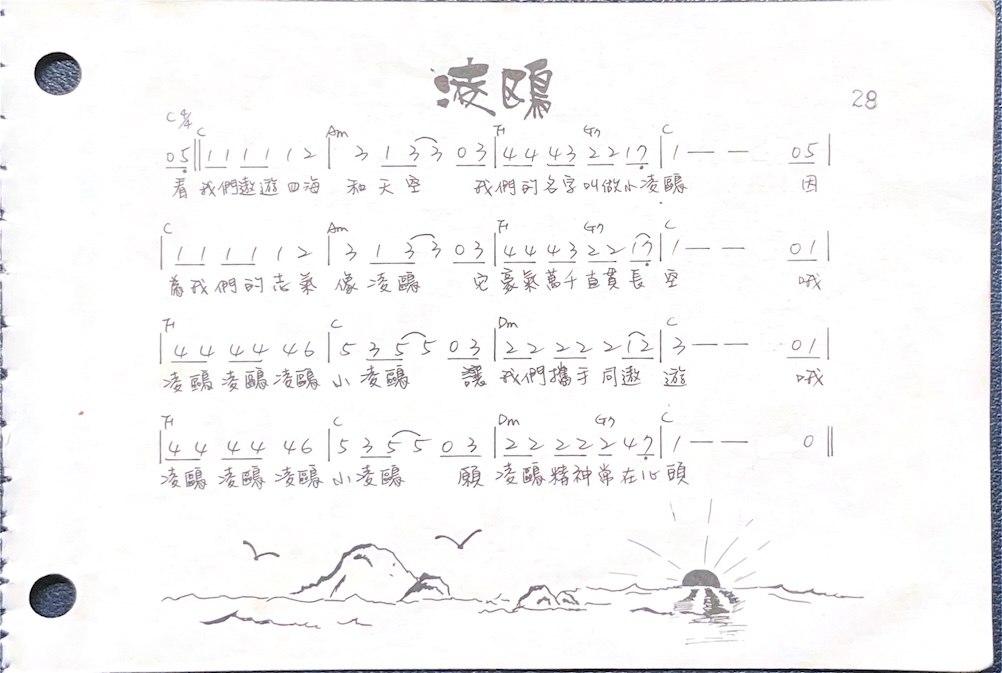 凌鷗
28
C 4/4
C Am F G7 C
05‖1111 12|3 1 3 3 03|44 43 2217|1 — — 05|
看我們遨遊四海 和天空 我們的名字叫做小凌鷗 因
C Am F G7 C
|1111 12|3 1 3 3 03|44 43 22 17|1 — — 01|
為我們的志氣 像凌鷗 它豪氣萬千直貫長空 哦
F C Dm C
|44 44 46|5 3 5 5 03|22 22 2 12|3 — — 01|
凌鷗凌鷗凌鷗小凌鷗 讓我們攜手同遨遊 哦
F C Dm G7 C
|44 44 46|5 3 5 5 03|22 22 2 47|1 — — 0‖
凌鷗凌鷗凌鷗小凌鷗 願凌鷗精神常在心頭